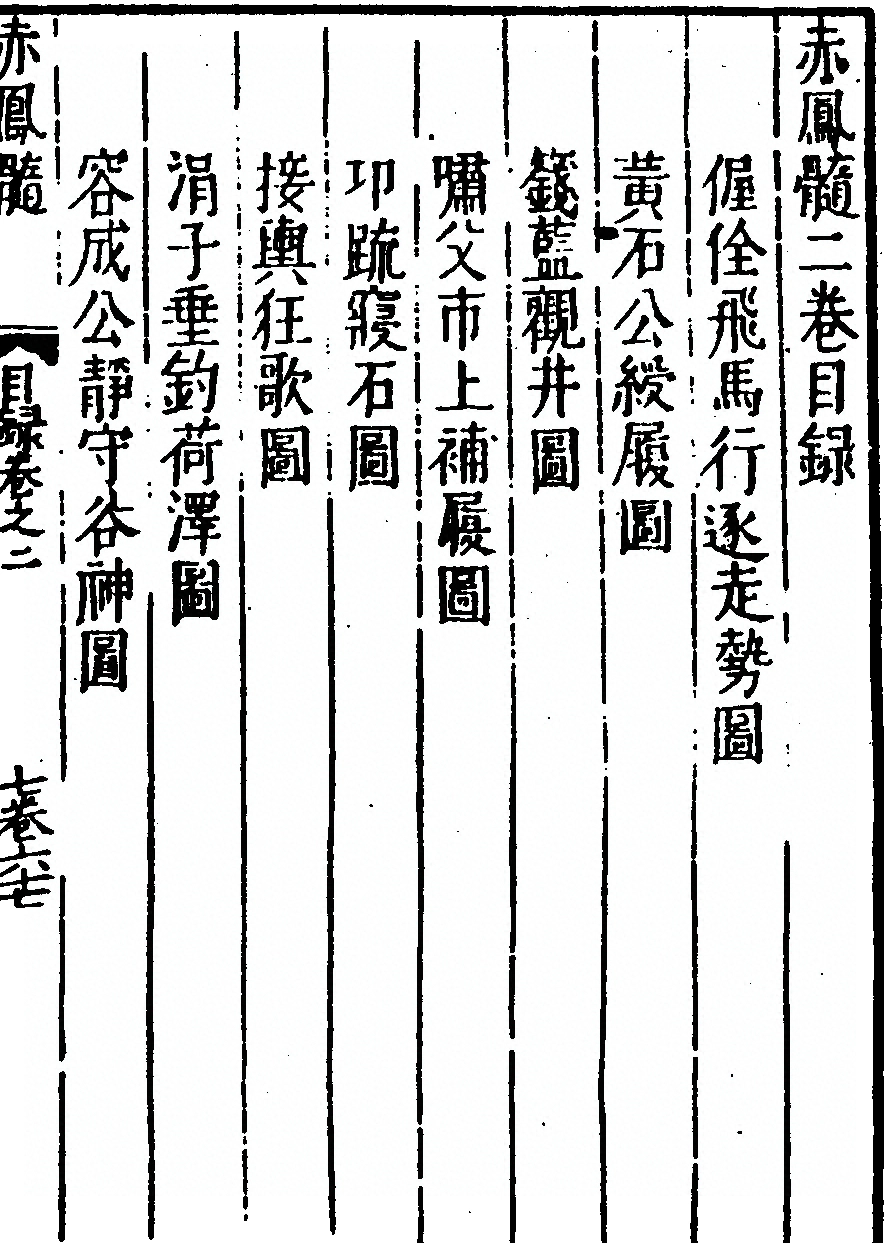 赤鳳髓二卷目録
偓佺飛馬行逐走勢圖
黃石公綬履圖
籛藍觀井圖
嘯父市上補履圖
卭疏寢石圖
接輿狂歌圖
涓子垂釣荷澤圖
容成公靜守谷神圖
赤鳳髓
目録卷之二